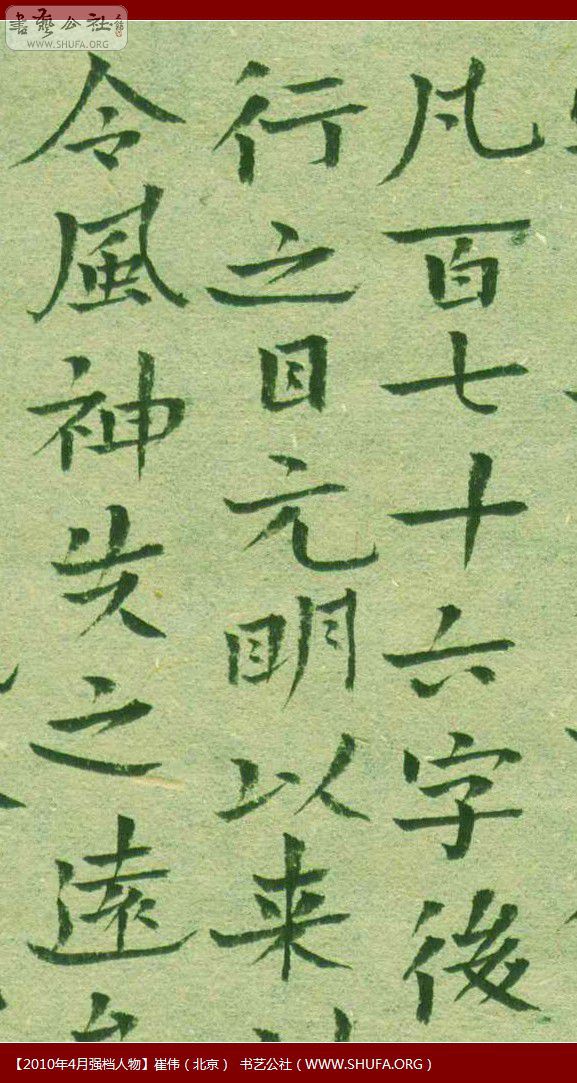 書藝公社
WWW.SHUFA.ORG
凡百七十六字後
行之目元明以来
令風神失之遠
【2010年4月强档人物】崔伟（北京） 书艺公社（WWW.SHUFA.ORG）